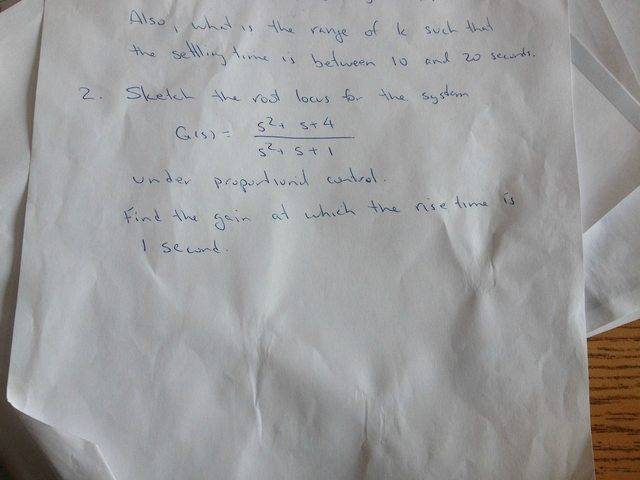 Also, what is the range of k such that
the settling time is between 10 and 20 seconds.
2. Sketch the root locus for the system
G(s) = s²+ s+4 / s²+ s+1
under proportional control.
Find the gain at which the rise time is
1 second.